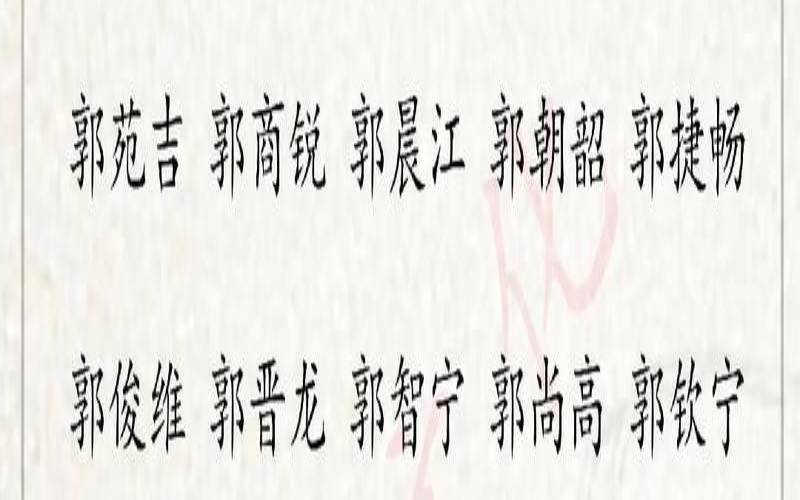 郭苑吉 郭商锐 郭晨江 郭朝韶 郭捷畅
郭俊维 郭晋龙 郭智宁 郭尚高 郭钦宁